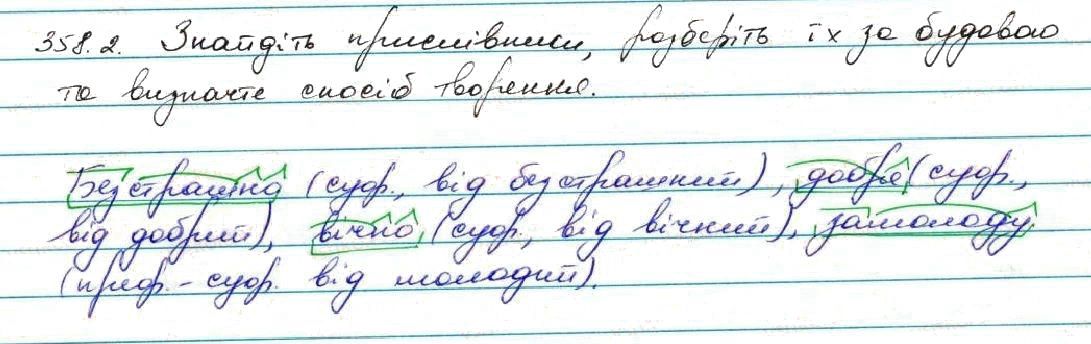 358.2. Знайдіть прислівники, розберіть їх за будовою
та визначте спосіб творення.
Безстрашно (суф., від безстрашний), добре (суф.,
від добрий), вічно (суф., від вічний), замолоду
(преф.-суф. від молодий).